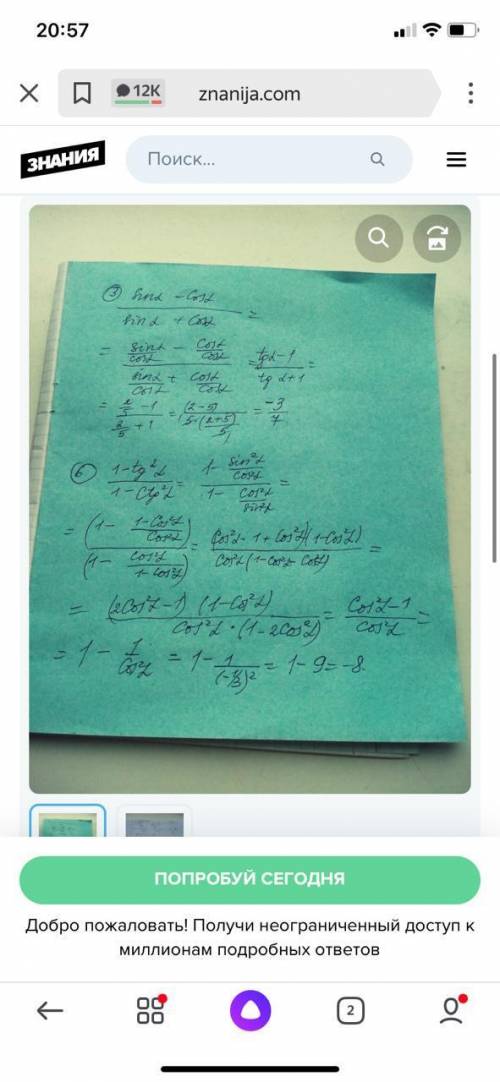 20:57
12K
znanija.com
ЗНАНИЯ
Поиск...
③ (sinα - cosα)/(sinα + cosα) =
= (sinα/cosα - cosα/cosα)/(sinα/cosα + cosα/cosα) = (tgα-1)/(tgα+1) =
= -3/7
⑥ (1-tg²α)/(1-ctg²α) =
= (1 - (1-cos²α)/cos²α)/(1 - cos²α/(1-cos²α)) = (cos²α-1+cos²α)(1-cos²α)/(cos²α(1-cos²α-cos²α)) =
= (2cos²α-1)(1-cos²α)/(cos²α·(1-2cos²α)) = (cos²α-1)/cos²α =
= 1 - 1/cos²α = 1 - 1/(-1/3)² = 1-9=-8.
ПОПРОБУЙ СЕГОДНЯ
Добро пожаловать! Получи неограниченный доступ к
миллионам подробных ответов
2